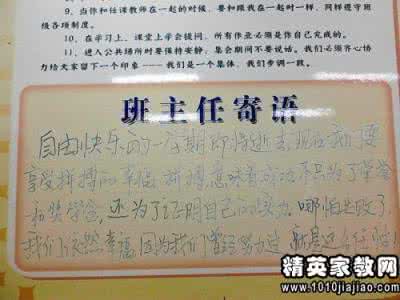 9、当你和任课教师在一起的时候，要和跟我在一起时一样，同样遵守班
级各项制度。
10、在学习上，课堂上学会提问，所有作业必须是你自己完成的。
11、进入公共场所时要保持安静；集会期间不要说话。我们必须齐心协
力给大家留下一个印象——我们是一个集体，我们步调一致。
班主任寄语
自由快乐的一星期即将逝去 现在我们要
享受拼搏的幸福 拼搏 意味着成功 不只为了荣誉
和奖学金，还为了证明自己的努力。哪怕失败了，
我们依然幸福，因为我们曾经努力过，
精英家教网
www.1010jiajiao.com